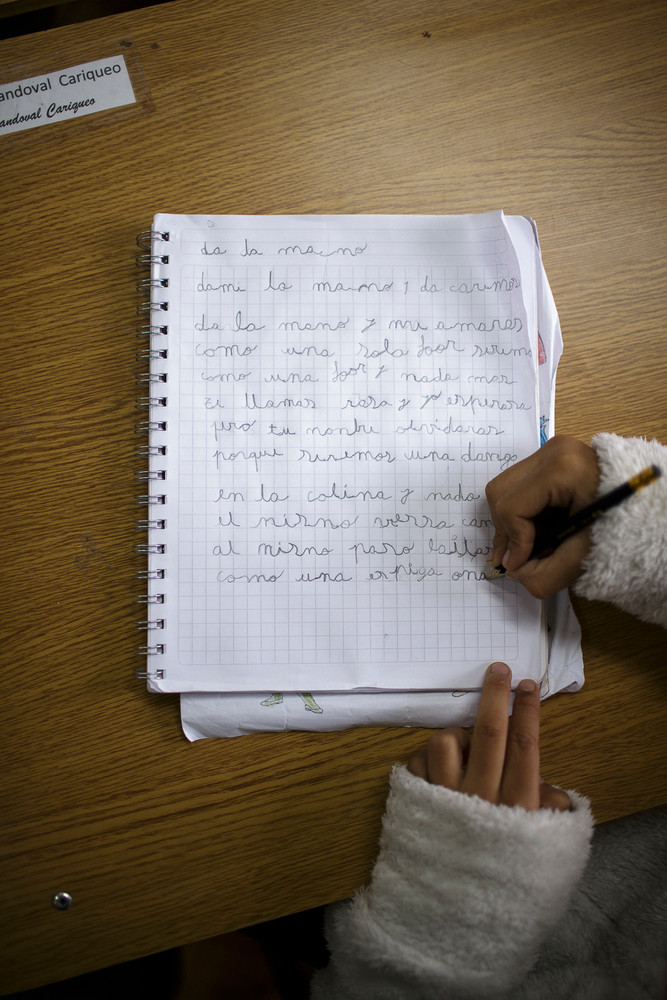 andoval Cariqueo
andoval Cariqueo
da la mano
dami la mano y da caremos
da la mano y mi amaras
como una sola foor seremo
como una foor y nada mas
te llamas rosa y yo esperarsa
pero tu nonbre olvidaras
porque seremos una danga
en la colina y nada
el mismo verrsa can
al mismo paso bailar
como una espiga ona